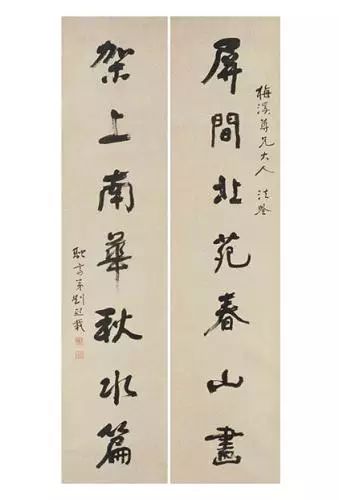 屏間北苑春山畫
梅溪尊兄大人 法
架上南華秋水篇
弟劉